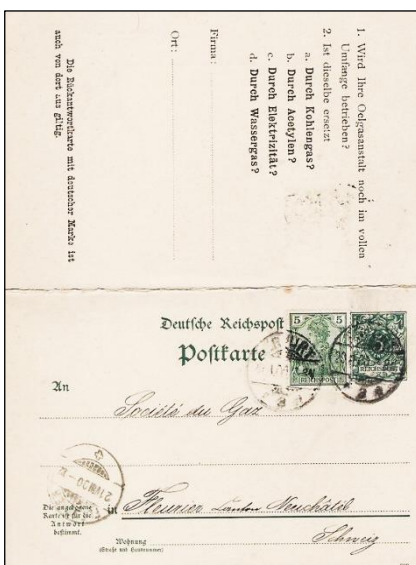 1. Wird Ihre Oelgasanstalt noch im vollen
Umfange betrieben?
2. Ist dieselbe ersetzt
a. Durch Kohlengas?
b. Durch Acetylen?
c. Durch Elektrizität?
d. Durch Wassergas?
Firma:
Ort:
Die Rückantwortkarte mit deutscher Marke ist
auch von dort aus gültig.
Deutsche Reichspost
Postkarte
5 5
REICHSPOST
5
REICHSPOST
An
Société du Gaz
Die angebogene
Karte ist für die
Antwort
bestimmt.
in Fleurier Canton Neuchâtel
Schweiz
Wohnung
(Straße und Hausnummer)